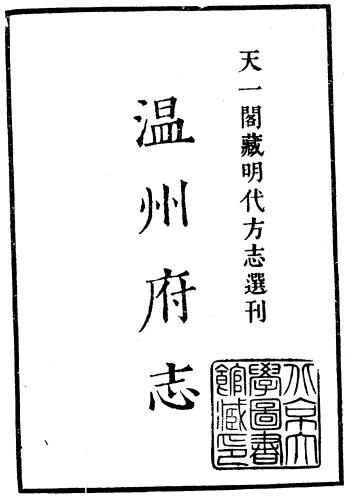 天一閣藏明代方志選刊
温州府志
北京大
學圖書
館藏印